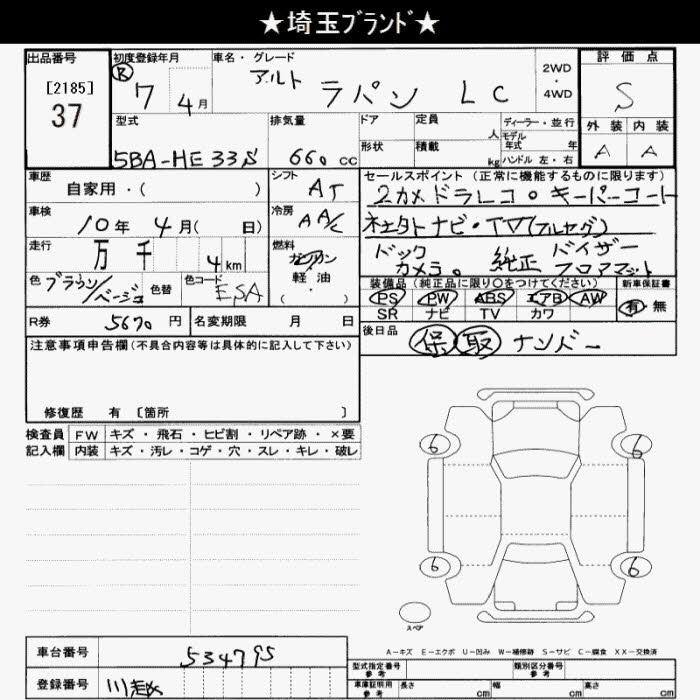 ★埼玉ﾌﾞﾗﾝﾄﾞ★
出品番号
[2185]
37
初度登録年月
Ⓡ 7 4月
車名・グレード
アルト ラパン LC
2WD
・
4WD
評価点
S
外装 内装
A A
型式
5BA-HE33S
排気量
660 cc
ドア
定員
人
形状
積載
kg
ディーラー・並行
モデル
年式 年
ハンドル 左・右
車歴
自家用・( )
シフト
AT
車検
10年 4月( 日)
冷房
AAC
走行
万 千 4 km
燃料
ガソリン
軽油
・
( )
色 ブラウン/ベージュ
色替
色コード
ESA
R券 5670 円
名変期限 月 日
セールスポイント (正常に機能するものに限ります)
2カメドラレコ。キーパーコート
ナビ・TV(フルセグ)
ドック バイザー
カメラ。 純正 フロアマット
装備品 (純正品に限り〇をつけてください)
PS PW ABS エアB AW
SR ナビ TV カワ
新車保証書
有・無
後日品
保 取 ナンバー
注意事項申告欄 (不具合内容等は具体的に記入して下さい)
修復歴 有 [箇所 ]
検査員
記入欄
FW キズ・飛石・ヒビ割・リペア跡・×要
内装 キズ・汚レ・コゲ・穴・スレ・キレ・破レ
6 6
6 6
スペア
A-キズ E-エクボ U-凹み W-補修跡 S-サビ C-腐食 XX-交換済
車台番号 534795
登録番号
型式指定番号
参考
類別区分番号
参考
車庫証明用
参考
長さ cm
幅 cm
高さ cm